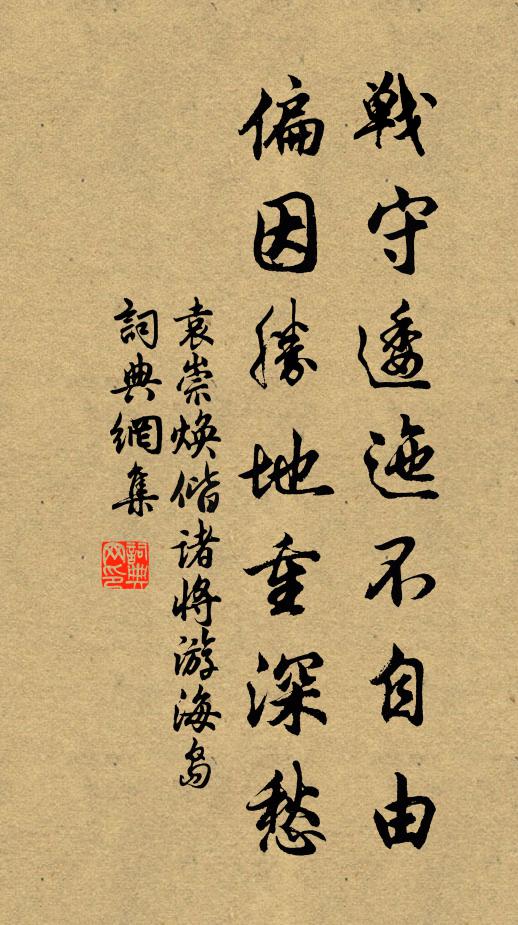 戰守逶迤不自由
偏因勝地重深愁
袁崇煥偕諸將游海島
詞典網集
詞典網印